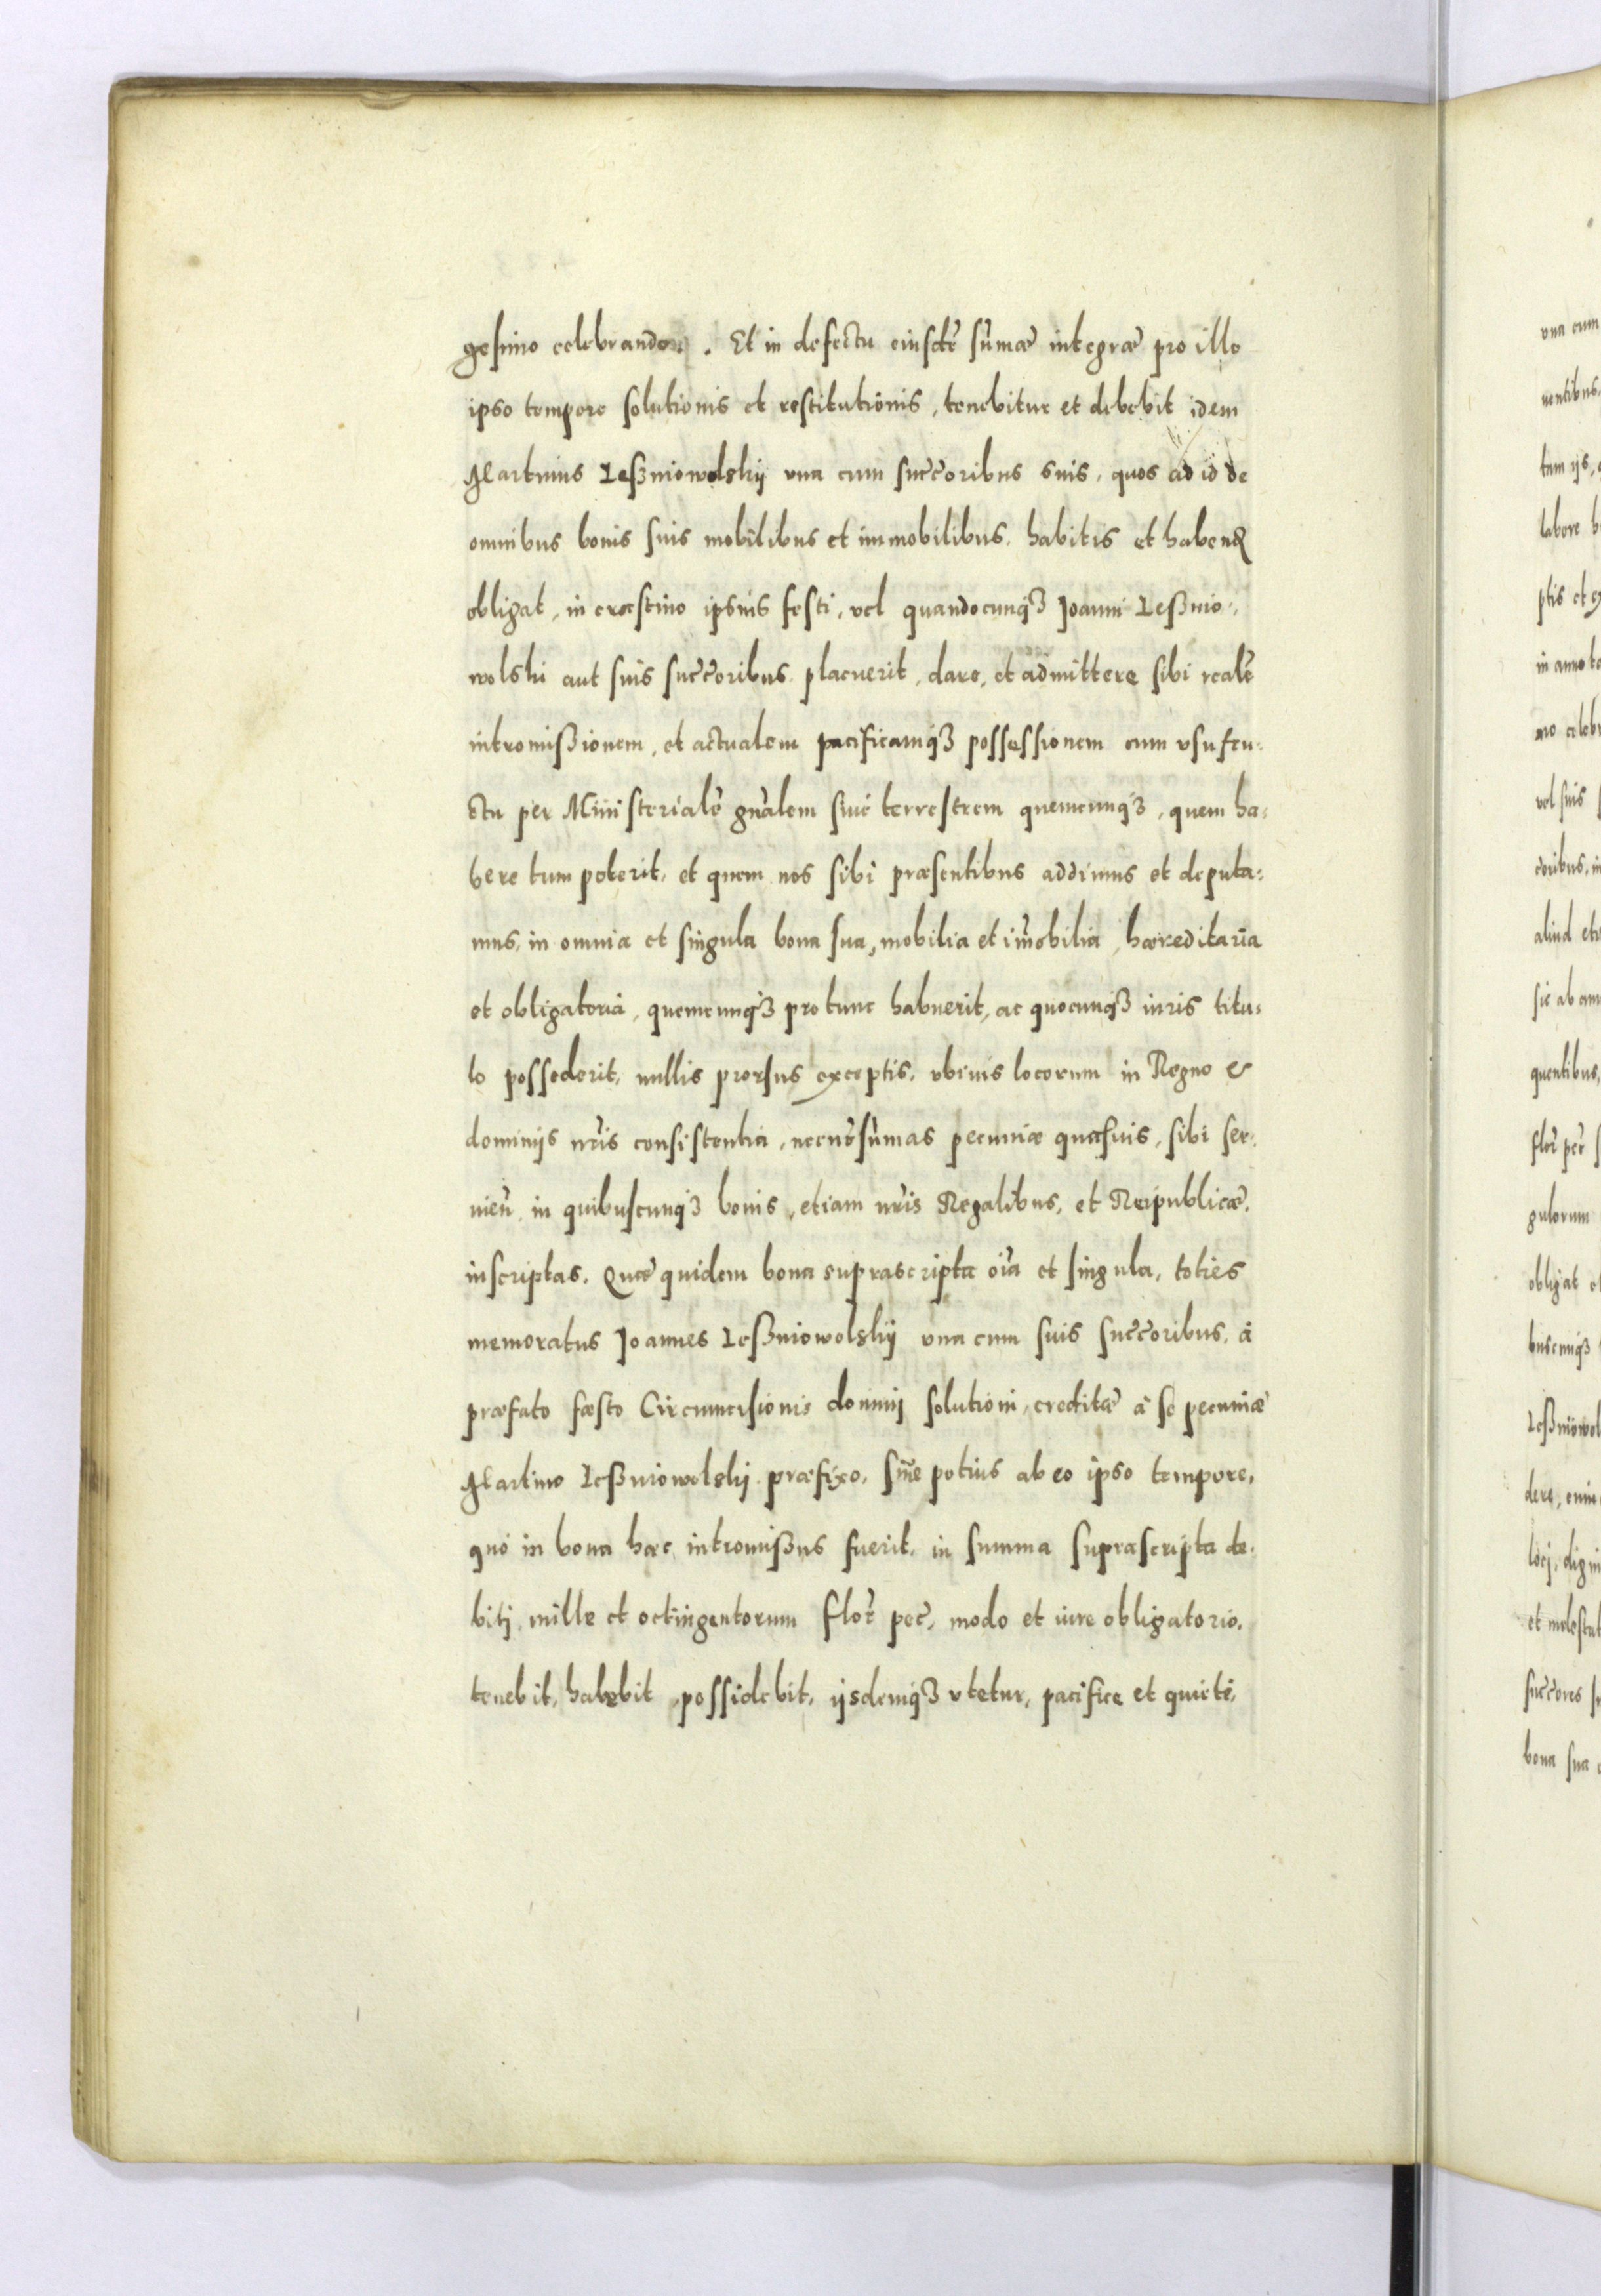 gesimo celebrando. Et in defectu eiuscẽ sũmæ integræ pro illo
ipso tempore solutionis et restitutionis, tenebitur et debebit idem
Martinus Leßniowolskij vna cum succ̃oribus suis, quos ad id de
omnibus bonis suis mobilibus et immobilibus, habitis et habenꝶ
obligat, in crastino ipsius festi, vel quandocunqꝫ Joanni Leßnio-
wolski aut suis succ̃oribus placuerit, dare, et admittere sibi realẽ
intromißionem, et actualem pacificamqꝫ possessionem cum vsufru-
ctu per Ministerialẽ gñalem siue terrestrem quemcunqꝫ, quem ha-
bere tum poterit, et quem nos sibi præsentibus addimus et deputa-
mus, in omnia et singula bona sua, mobilia et im̃obilia, hæreditaria
et obligatoria, quæcunqꝫ pro tunc habuerit, ac quocunqꝫ iuris titu-
lo possederit, nullis prorsus exceptis, vbiuis locorum in Regno &
dominijs nr̃is consistentia, necnõ sũmas pecuniæ quasuis, sibi ser-
uieñ, in quibuscunqꝫ bonis, etiam nr̃is Regalibus, et Reipublicæ,
inscriptas. Quæ quidem bona suprascripta oĩa et singula, toties
memoratus Joannes Leßniowolskij vna cum suis succ̃oribus, à
præfato fæsto Circumcisionis domini solutioni, creditæ à se pecuniæ
Martino Leßniowolskij præfixo, siũe potius ab eo ipso tempore,
quo in bona hæc intromißus fuerit, in summa suprascripta de-
biti, mille et octingentorum flor̃ pec̃, modo et iure obligatorio,
tenebit, habebit, possidebit, ijsdemqꝫ vtetur, pacifice et quietè,
vna cum
uentibus,
tum ijs,
labore
ptis et
in anno
mo celeb
vel suis
coribus, in
aliud
sic ab
quentibus,
flor̃ pec̃
gulorum
obligat
buscunqꝫ
Leßniowol
dere,
locj, dign
et molesta
succ̃ores
bona sua